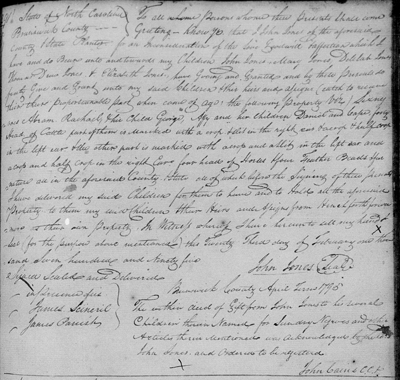 State of North Carolina To all whome Persons whome these Presents Shall come
Brunswick County Greeting Know ye that I John Jones of the aforesaid
County & State Planter for an in consideration of the love good will & affection which I
have and do bear unto and towards my Children John Jones Mary Jones Delilah Jones
Thomas Jones & Elizabeth Jones have given and granted and by these Presents do
give and grant unto my said Children their heirs and assigns each to receive
their Proportionable part when come of age the following property Viz
Abram Rachael & her Child George and her Children Daniel and forty
head of Cattle part of them is marked with a crop & slit in the right ear & half crop
in the left ear & the other part is marked with a crop and slit in the left ear and
a crop and half crop in the right Ears four head of Horses four Feather Beads
in the aforesaid County & State all of which before the signing of these presents
I have delivered my said Children for them to have and to hold all the aforesaid
Property to them my said Children their Heirs and assigns from henceforth
as their own Property In Witness whereof I have hereunto set my hand &
Seal for the purpose above mentioned this Twenty Third day of February one thousand
Seven hundred and Ninety five
John Jones Seal
Signed Sealed and Delivered
in presence of us
James
James Parrish
Brunswick County April Term 1795
The within deed of Gift from John Jones to his several
Children therein Named for Sundry Negroes and other
Articles therein Mentioned was Acknowledged by the
John Jones and Ordered to be registered
John Cains C.C.